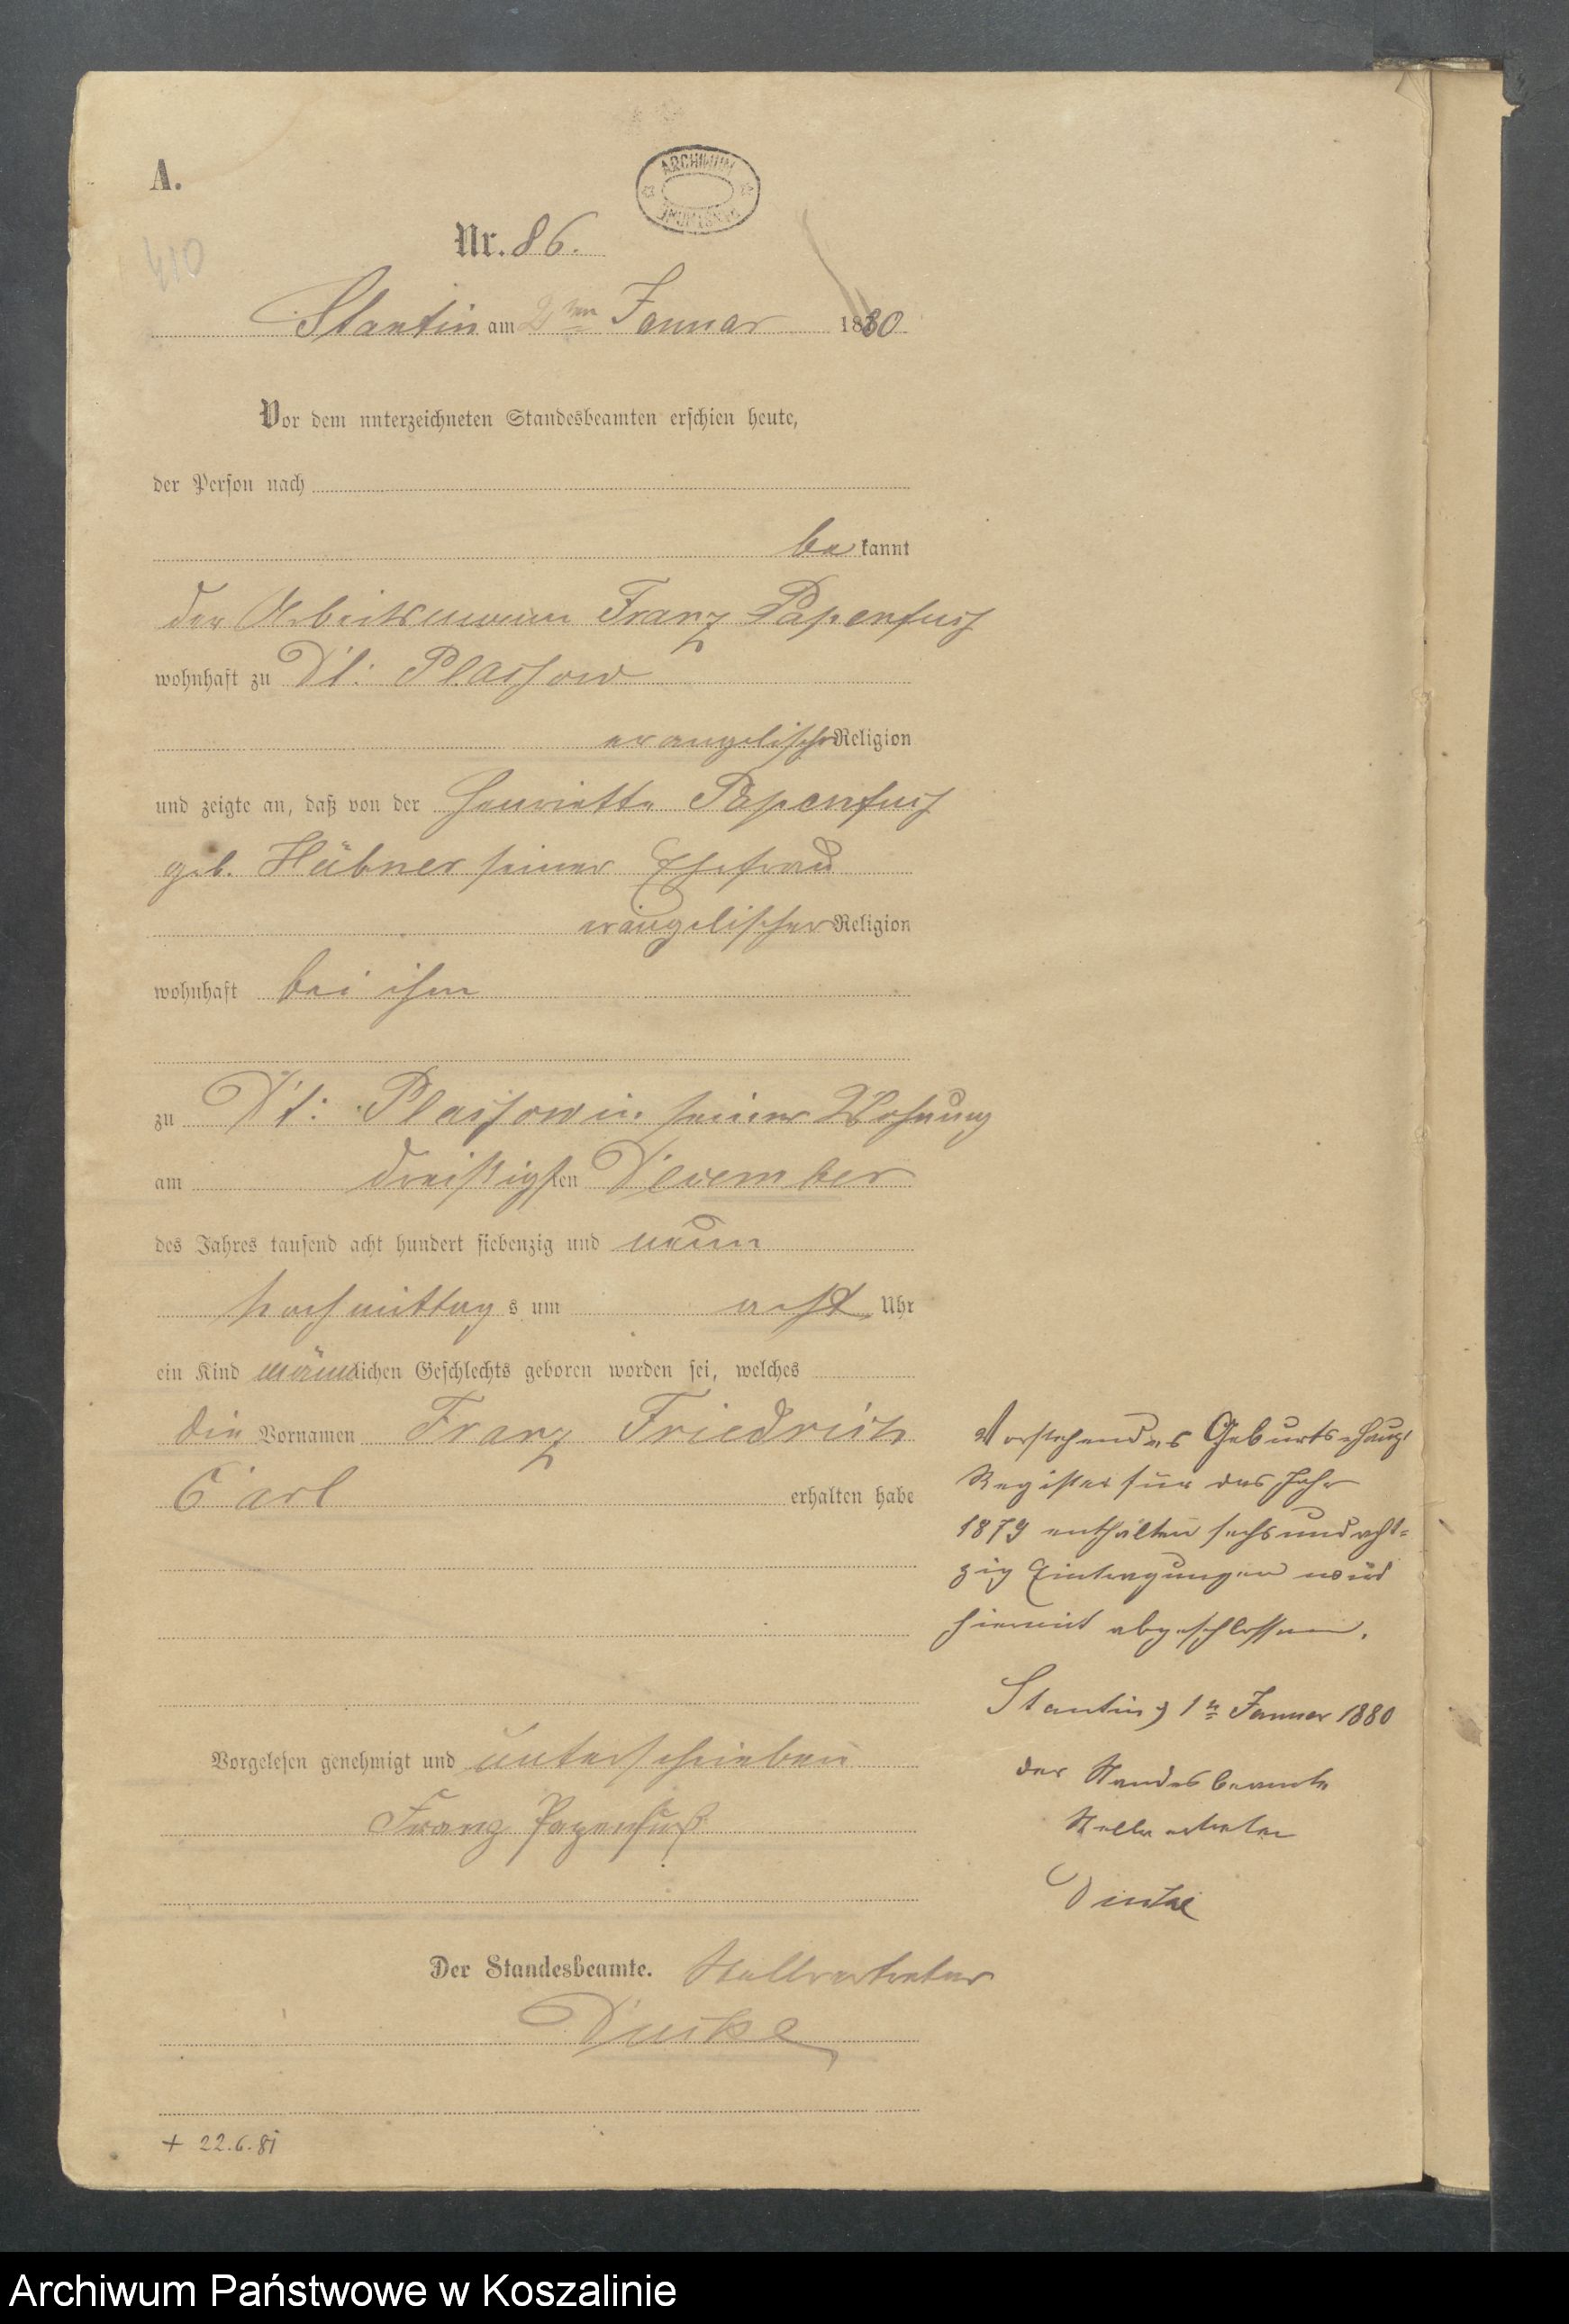 A.
ARCHIWUM
Nr. 86.
410
Stantin am 2ten Januar 1880
Vor dem unterzeichneten Standesbeamten erschien heute,
der Person nach
bekannt
der Arbeitsmann Franz Papenfuss
wohnhaft zu Dt: Plassow
evangelischer Religion
und zeigte an, daß von der Henriette Papenfuss
geb. Hübner seiner Ehefrau
evangelischer Religion
wohnhaft bei ihm
zu Dt: Plassow in seiner Wohnung
am dreißigsten December
des Jahres tausend acht hundert siebenzig und neun
Nachmittags um acht Uhr
ein Kind männlichen Geschlechts geboren worden sei, welches
die Vornamen Franz Friedrich
Carl erhalten habe
Vorgelesen genehmigt und unterschrieben
Franz Papenfuß
Der Standesbeamte. Stellvertreter
+ 22.6.81
Vorstehendes Geburts-Haupt
Register für das Jahr
1879 enthalten sechsundacht=
zig Eintragungen wird
hiermit abgeschlossen.
Stantin, 1ten Januar 1880
der Standesbeamte
Stellvertreter
Archiwum Państwowe w Koszalinie